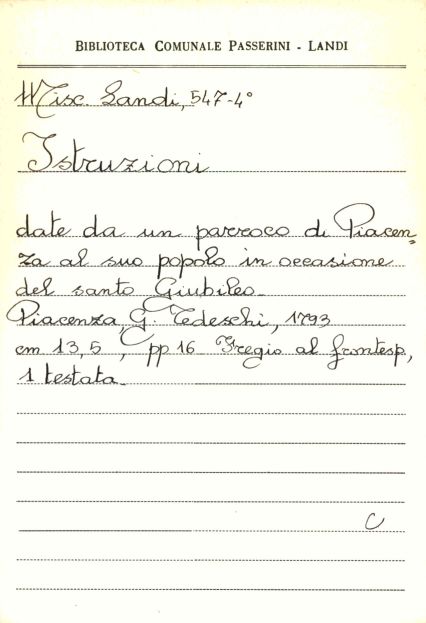 BIBLIOTECA COMUNALE PASSERINI - LANDI
Misc. Landi, 547-4°
Istruzioni
date da un parroco di Piacen=
za al suo popolo in occasione
del santo Giubileo_
Piacenza, G. Tedeschi, 1793
cm 13,5, pp 16 Fregio al frontesp.,
1 testata_
C